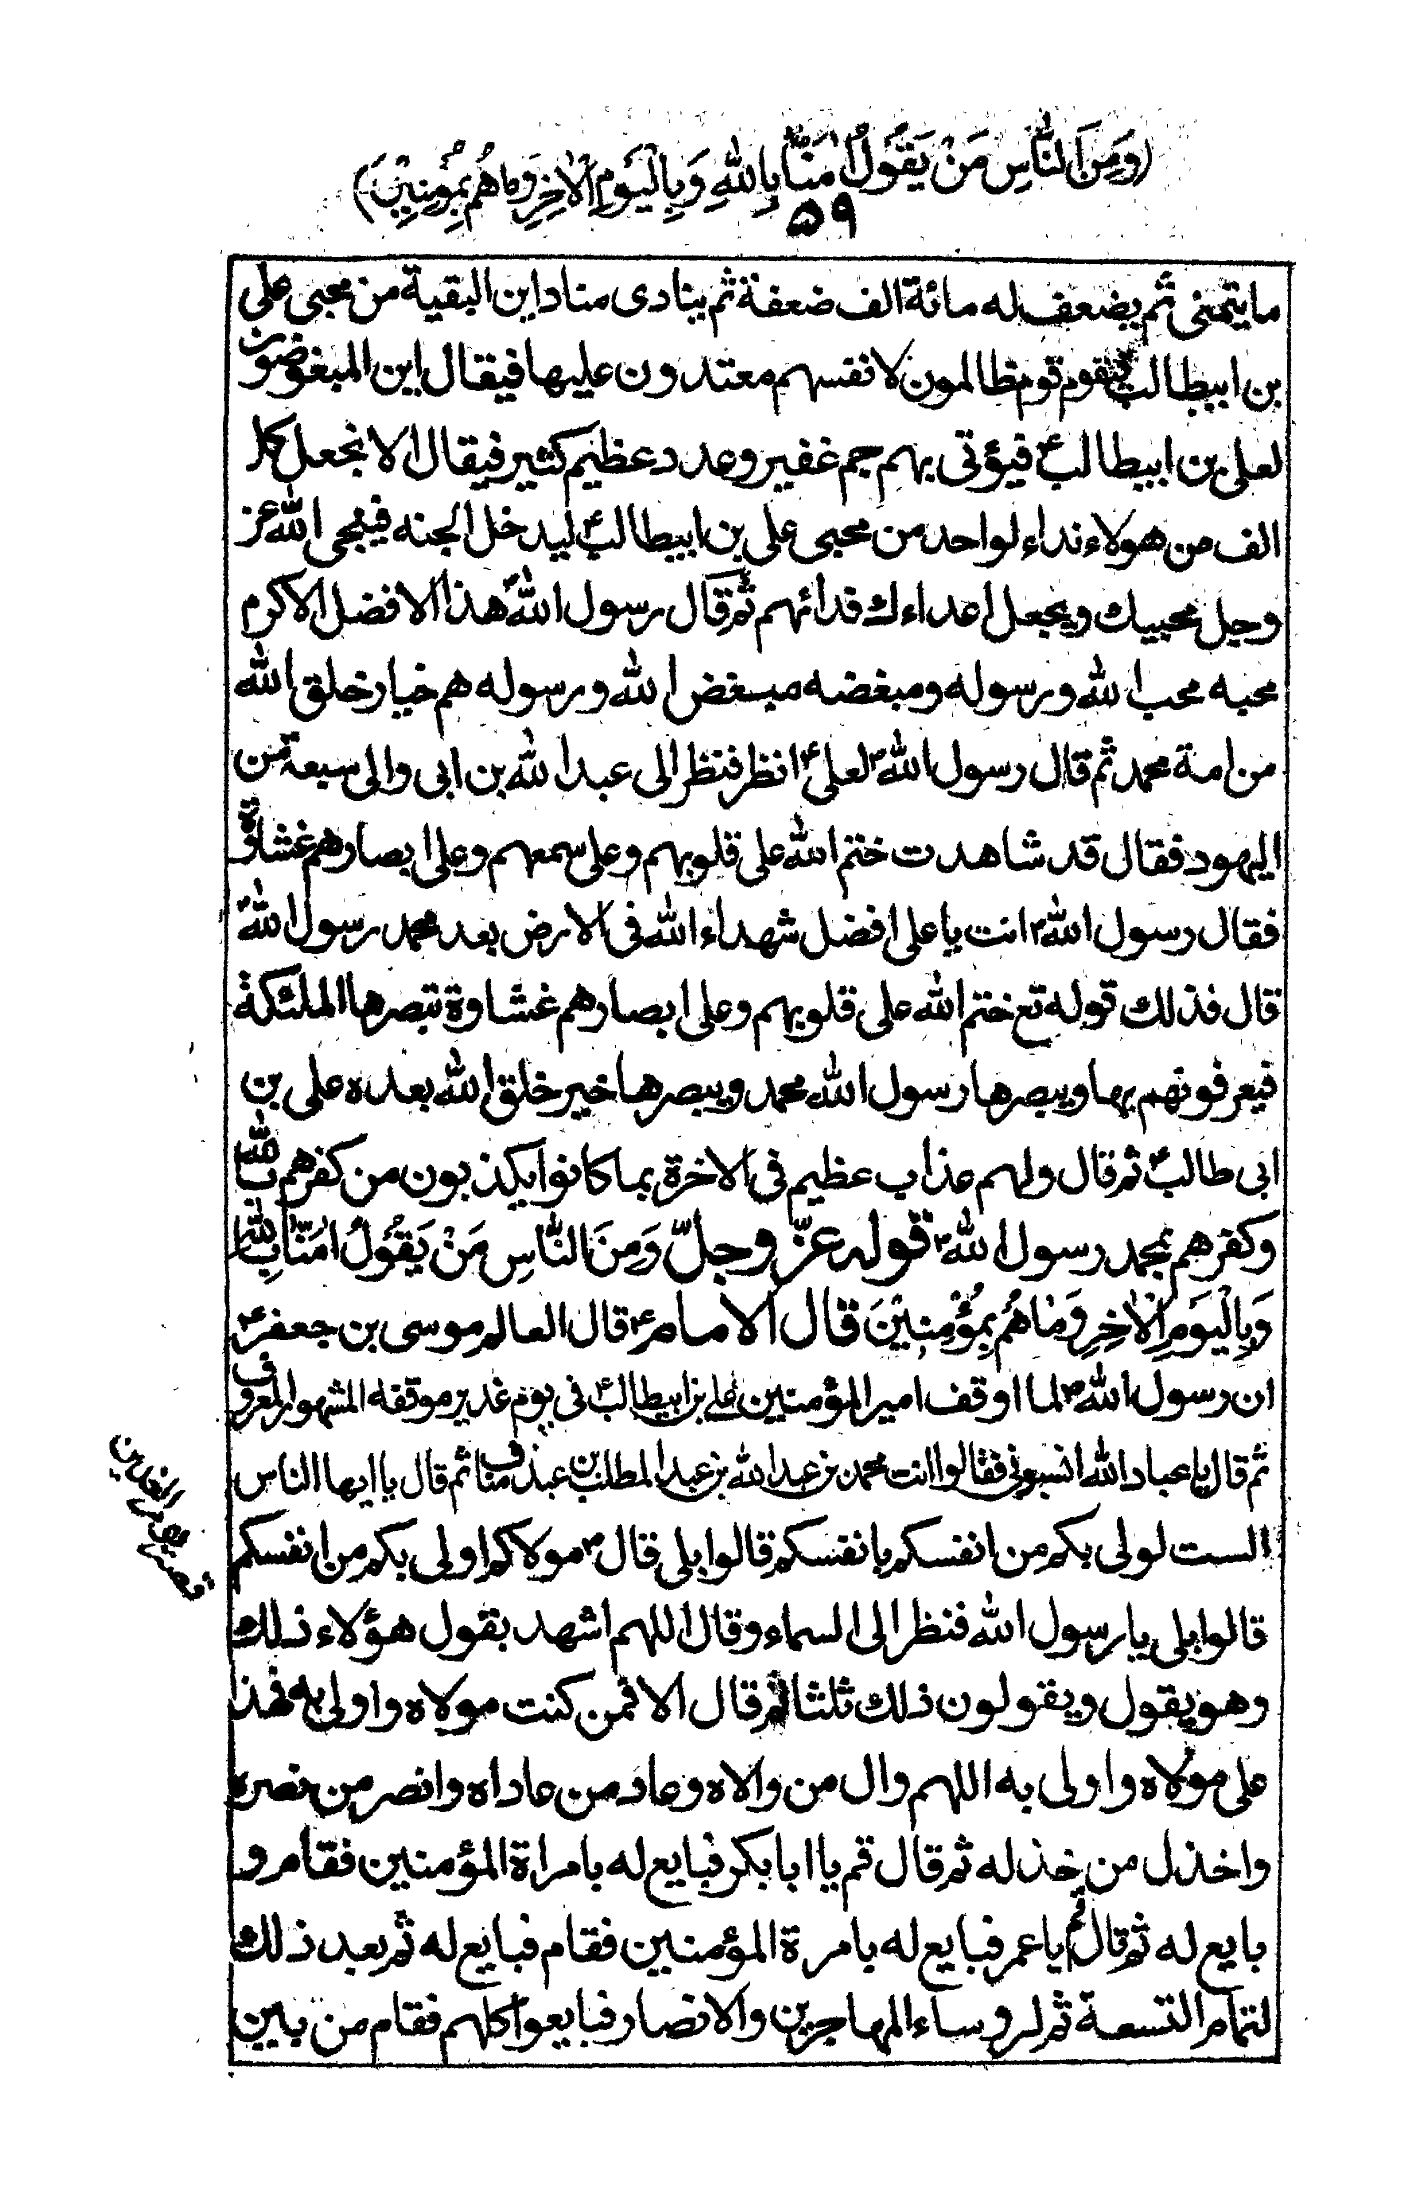 (وَمِنَ النَّاسِ مَنْ يَقُولُ اٰمَنَّا بِاللّٰهِ وَبِالْيَوْمِ الْاٰخِرِ وَمَا هُمْ بِمُؤْمِنِيْنَ)
۵۹
ما يتمنى ثم يضعف له مائة الف ضعفة ثم ينادى مناد اين البقية من محبى على
بن ابيطالبؑ فيقوم قوم ظالمون لانفسهم معتدون عليها فيقال اين المبغوضون
لعلى بن ابيطالبؑ فيؤتى بهم جم غفير وعدد عظيم كثير فيقال الا نجعل كل
الف من هولاء نداء لواحد من محبى على بن ابيطالبؑ ليدخل الجنه فينجى الله عز
وجل محبيك ويجعل اعداءك فدائهم ثم قال رسول اللهؐ هذا الافضل الاكرم
محبه محب الله ورسوله ومبغضه مبغض الله ورسوله هم خيار خلق الله
من امة محمد ثم قال رسول اللهؐ لعلىؑ انظر فنظر الى عبد الله بن ابى والى سبعة من
اليهود فقال قد شاهدت ختم الله على قلوبهم وعلى سمعهم وعلى ابصارهم غشاوة
فقال رسول اللهؐ انت يا على افضل شهداء الله فى الارض بعد محمد رسول اللهؐ
قال فذلك قوله تع ختم الله على قلوبهم وعلى ابصارهم غشاوة تبصرها الملئكة
فيعرفونهم بها ويبصرها رسول الله محمد ويبصرها خير خلق الله بعده على بن
ابى طالبؑ ثم قال ولهم عذاب عظيم فى الاخرة بما كانوا يكذبون من كفرهم بالله
وكفرهم بمحمد رسول اللهؐ قوله عزّ وجلّ وَمِنَ النَّاسِ مَنْ يَقُولُ اٰمَنَّا بِاللّٰهِ
وَبِالْيَوْمِ الْاٰخِرِ وَمَا هُمْ بِمُؤْمِنِيْنَ قال الامامؑ قال العالم موسى بن جعفرؑ
ان رسول اللهؐ لما اوقف امير المؤمنين على بن ابيطالبؑ فى يوم غدير موقفه المشهور المعروف
ثم قال يا عباد الله انسبونى فقالوا انت محمد بن عبد الله بن عبد المطلب بن عبد مناف ثم قال يا ايها الناس
الست لولى بكم من انفسكم بانفسكم قالوا بلى قالؐ مولاكم اولى بكم من انفسكم
قالوا بلى يا رسول الله فنظر الى السماء وقال اللهم اشهد بقول هؤلاء ذلك
وهو يقول ويقولون ذلك ثلثا ثم قال الا فمن كنت مولاه واولى به فهذا
على مولاه واولى به اللهم وال من والاه وعاد من عاداه وانصر من نصره
واخذل من خذله ثم قال قم يا ابا بكر فبايع له بامراة المؤمنين فقام و
بايع له ثم قال قم يا عمر فبايع له بامرة المؤمنين فقام فبايع له ثم بعد ذلك
لتمام التسعة ثم لروساء المهاجرين والانصار فبايعوا كلهم فقام من بين
قصة يوم الغدير